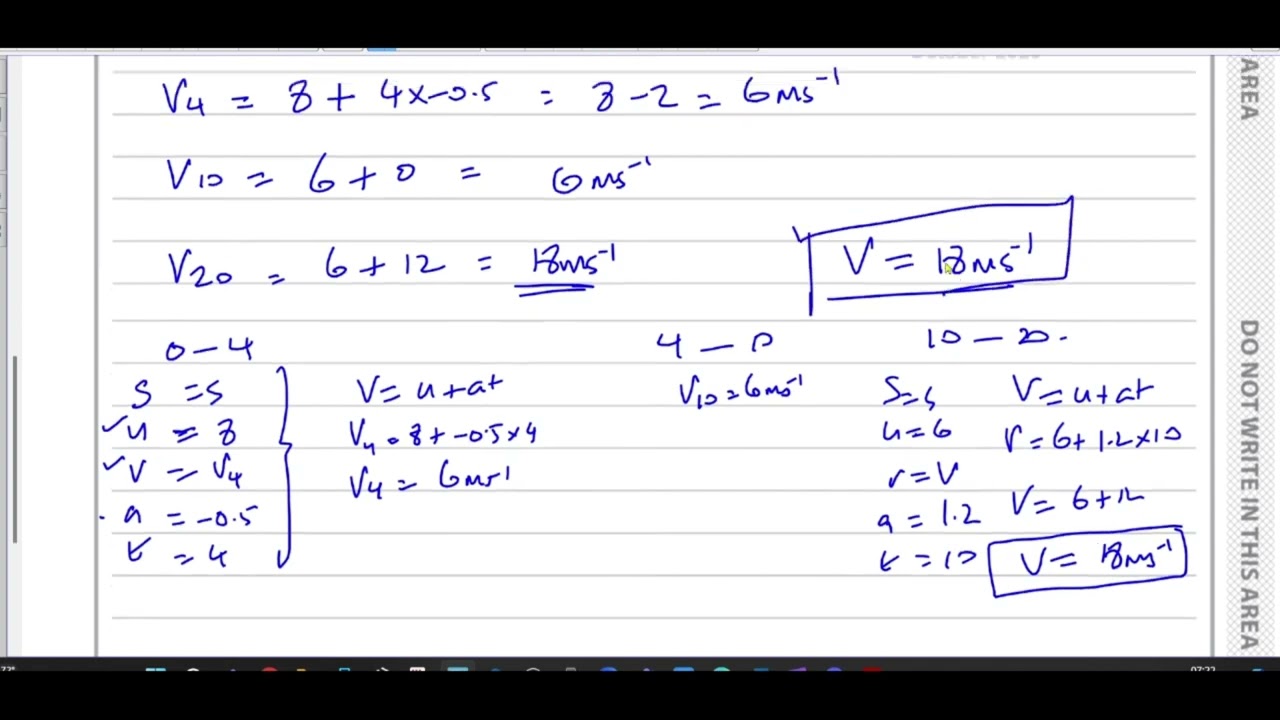 V4 = 8 + 4x-0.5 = 8-2 = 6ms⁻¹
V10 = 6 + 0 = 6ms⁻¹
V20 = 6+12 = 18ms⁻¹
V = 18ms⁻¹
0-4
S = s
✓u = 8
✓V = V4
. a = -0.5
t = 4
V = u+at
V4 = 8+-0.5x4
V4 = 6ms⁻¹
4 - 0
V10 = 6ms⁻¹
10 - 20.
S=s
u=6
v=V
a = 1.2
t = 10
V = u+at
V = 6+1.2x10
V = 6+12
V = 18ms⁻¹
AREA
DO NOT WRITE IN THIS AREA
07:22